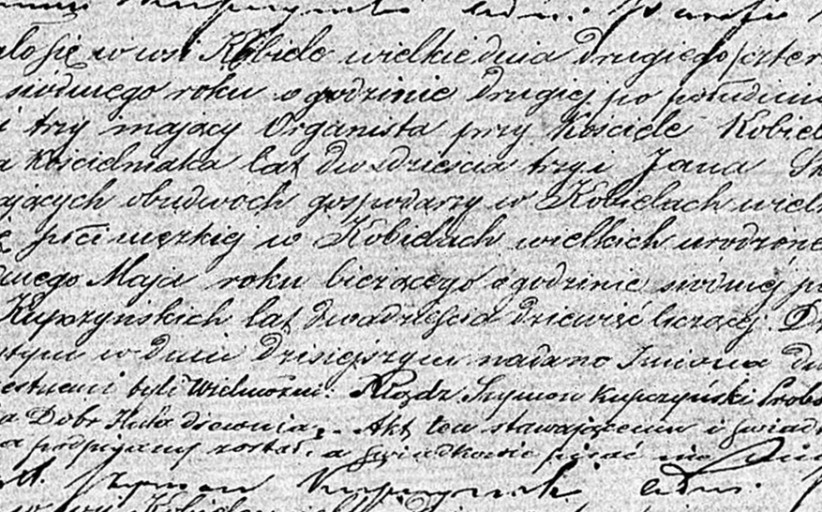 Kupczyński adm: Parafii
ało się w wsi Kobiele wielkie dnia drugiego /czter
siodmego roku o godzinie drugiej po południu
i trzy mający Organista przy kościele Kobiel
a Kościelniaka lat dwadzieścia trzy i Jana Sk
ających obudwóch gospodarzy w Kobielach wielk
ę płci męzkiej w Kobielach wielkich urodzone
Maja roku bieżącego o godzinie siódmej p
Kupczyńskich lat dwadzieścia dziewięć liczącej. D
tym w dniu dzisiejszym nadano Imiona
byli Wielmożni: Xiądz Szymon Kupczyński Probo
a Dobr Huta drewniana. Akt ten stawającemu i świad
a podpisany został, a świadkowie pisać nie
Szymon Kupczyński adm:
w wsi Kobiele